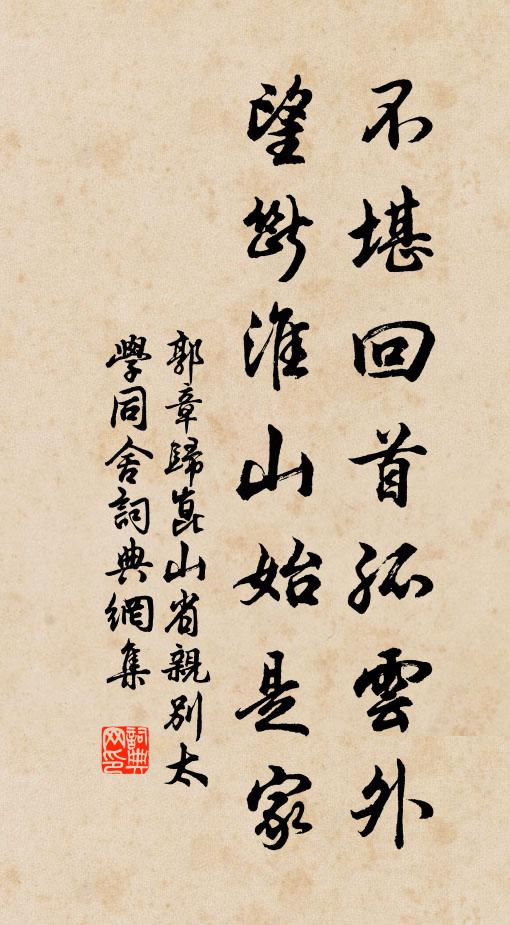 不堪回首孤雲外
望斷淮山始是家
郭章歸崑山省親別太
學同舍詞典網集
詞典網印